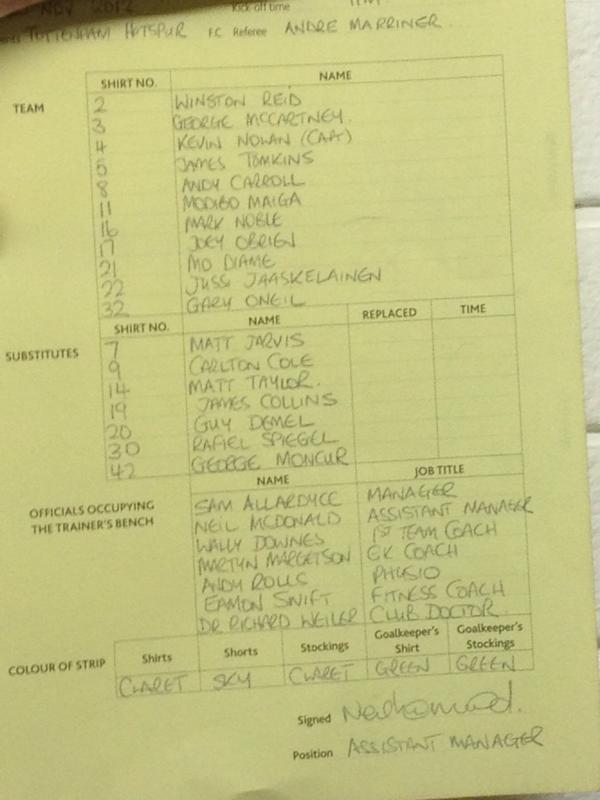 NOV 2012 Kick off time
TOTTENHAM HOTSPUR F.C Referee ANDRE MARRINER
SHIRT NO. NAME
TEAM
2 WINSTON REID
3 GEORGE MCCARTNEY.
4 KEVIN NOLAN (CAPT)
5 JAMES TOMKINS
8 ANDY CARROLL
11 MODIBO MAIGA
16 MARK NOBLE
17 JOEY OBRIEN
21 MO DIAME
22 JUSSI JAASKELAINEN
32 GARY ONEIL
SHIRT NO. NAME REPLACED TIME
SUBSTITUTES
7 MATT JARVIS
9 CARLTON COLE
14 MATT TAYLOR.
19 JAMES COLLINS
20 GUY DEMEL
30 RAFAEL SPIEGEL
42 GEORGE MONCUR
NAME JOB TITLE
OFFICIALS OCCUPYING
THE TRAINER'S BENCH
SAM ALLARDYCE MANAGER
NEIL MCDONALD ASSISTANT MANAGER
WALLY DOWNES 1ST TEAM COACH
MARTYN MARGETSON GK COACH
ANDY ROLLS PHYSIO
EAMON SWIFT FITNESS COACH
DR RICHARD WEILER CLUB DOCTOR.
COLOUR OF STRIP
Shirts Shorts Stockings Goalkeeper's Shirt Goalkeeper's Stockings
CLARET SKY CLARET GREEN GREEN
Signed
Position ASSISTANT MANAGER